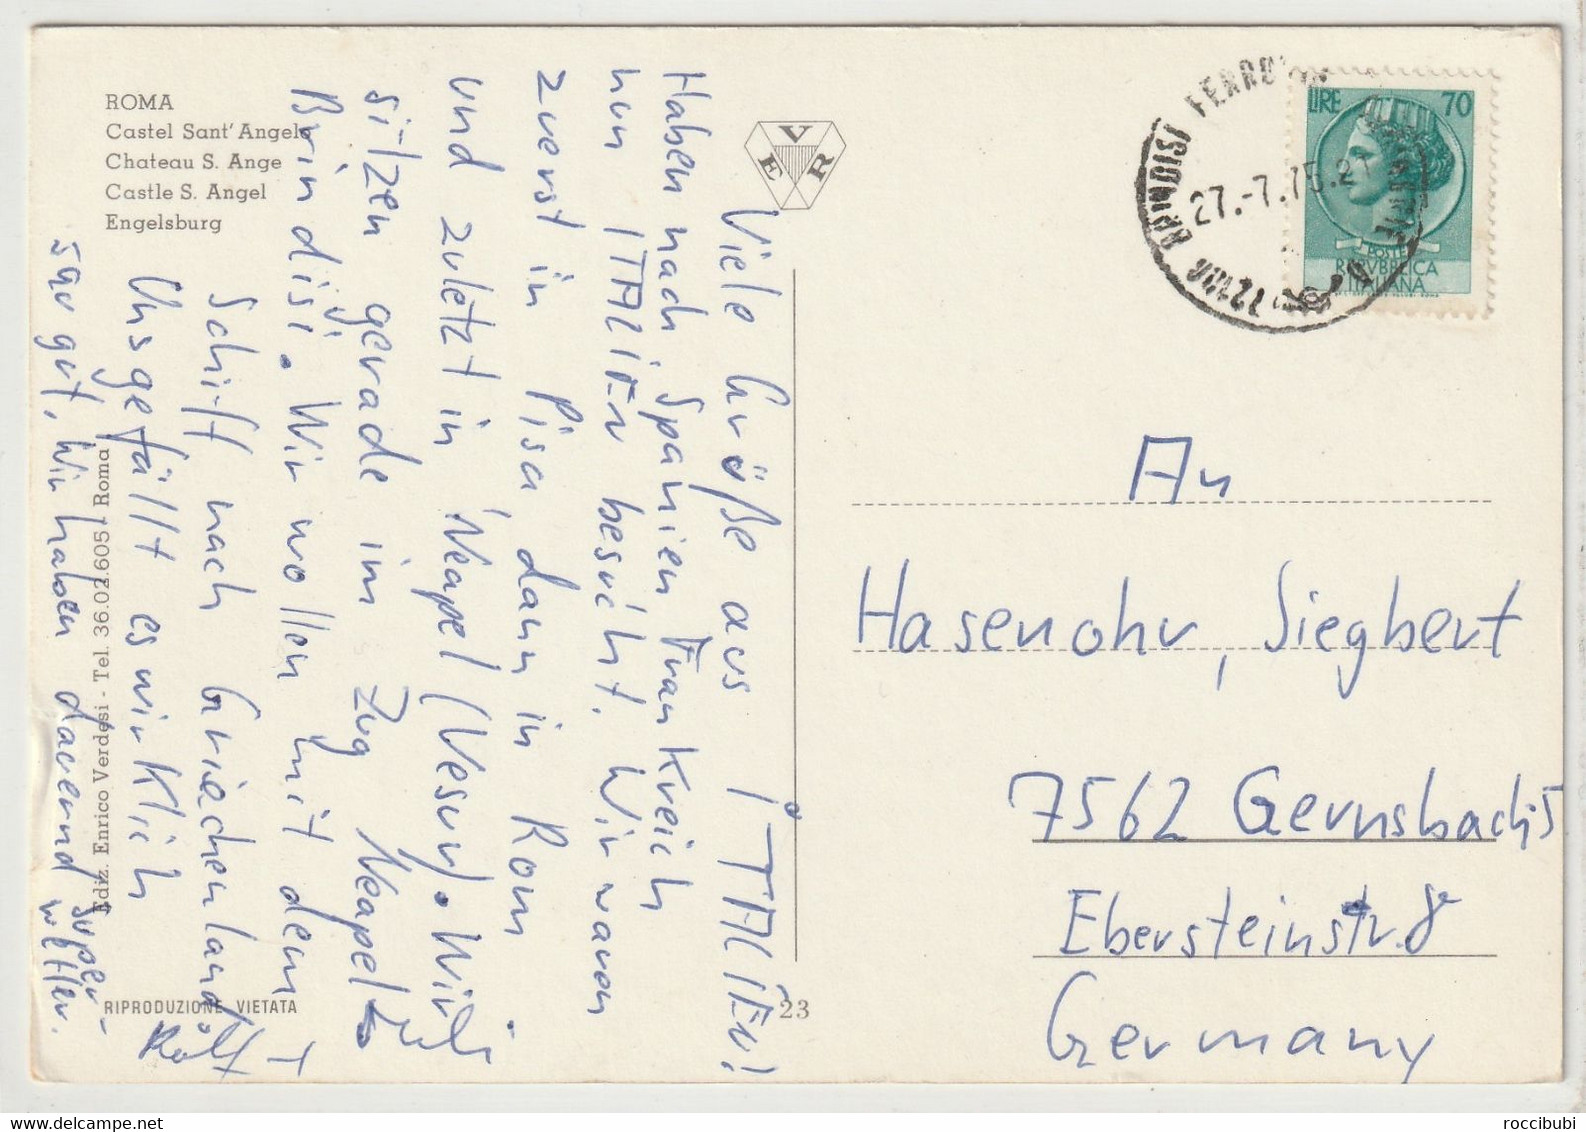 ROMA
Castel Sant' Angelo
Chateau S. Ange
Castle S. Angel
Engelsburg
VER
Viele Grüße aus ITALIEN!
Haben nach Spanien, Frankreich
nun ITALIEN besucht. Wir waren
zuerst in Pisa, dann in Rom
und zuletzt in Neapel (Vesuv). Wir
sitzen gerade im Zug Neapel
Brindisi. Wir wollen mit dem
Schiff nach Griechenland.
Uns gefällt es wirklich
sau gut, wir haben dauernd super-
wetter.
Rolf
Ediz. Enrico Verdesi - Tel. 36.02.605 - Roma
RIPRODUZIONE VIETATA
23
72100 BRINDISI FERROVIA
27.-7.75.21
LIRE 70
POSTE
REPVBBLICA
ITALIANA
An
Hasenohr, Siegbert
7562 Gernsbach 5
Ebersteinstr. 8
Germany
roccibubi